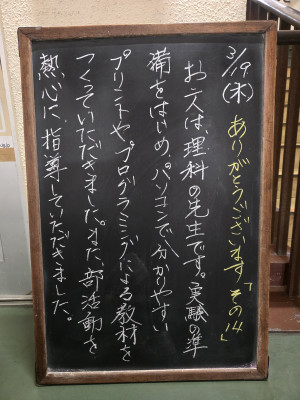 3/19(木) ありがとうございます「その14」
お二人は、理科の先生です。実験の準
備をはじめ、パソコンで分かりやすい
プリントやプログラミングによる教材を
つくっていただきました。また、部活動を
熱心に、指導していただきました。